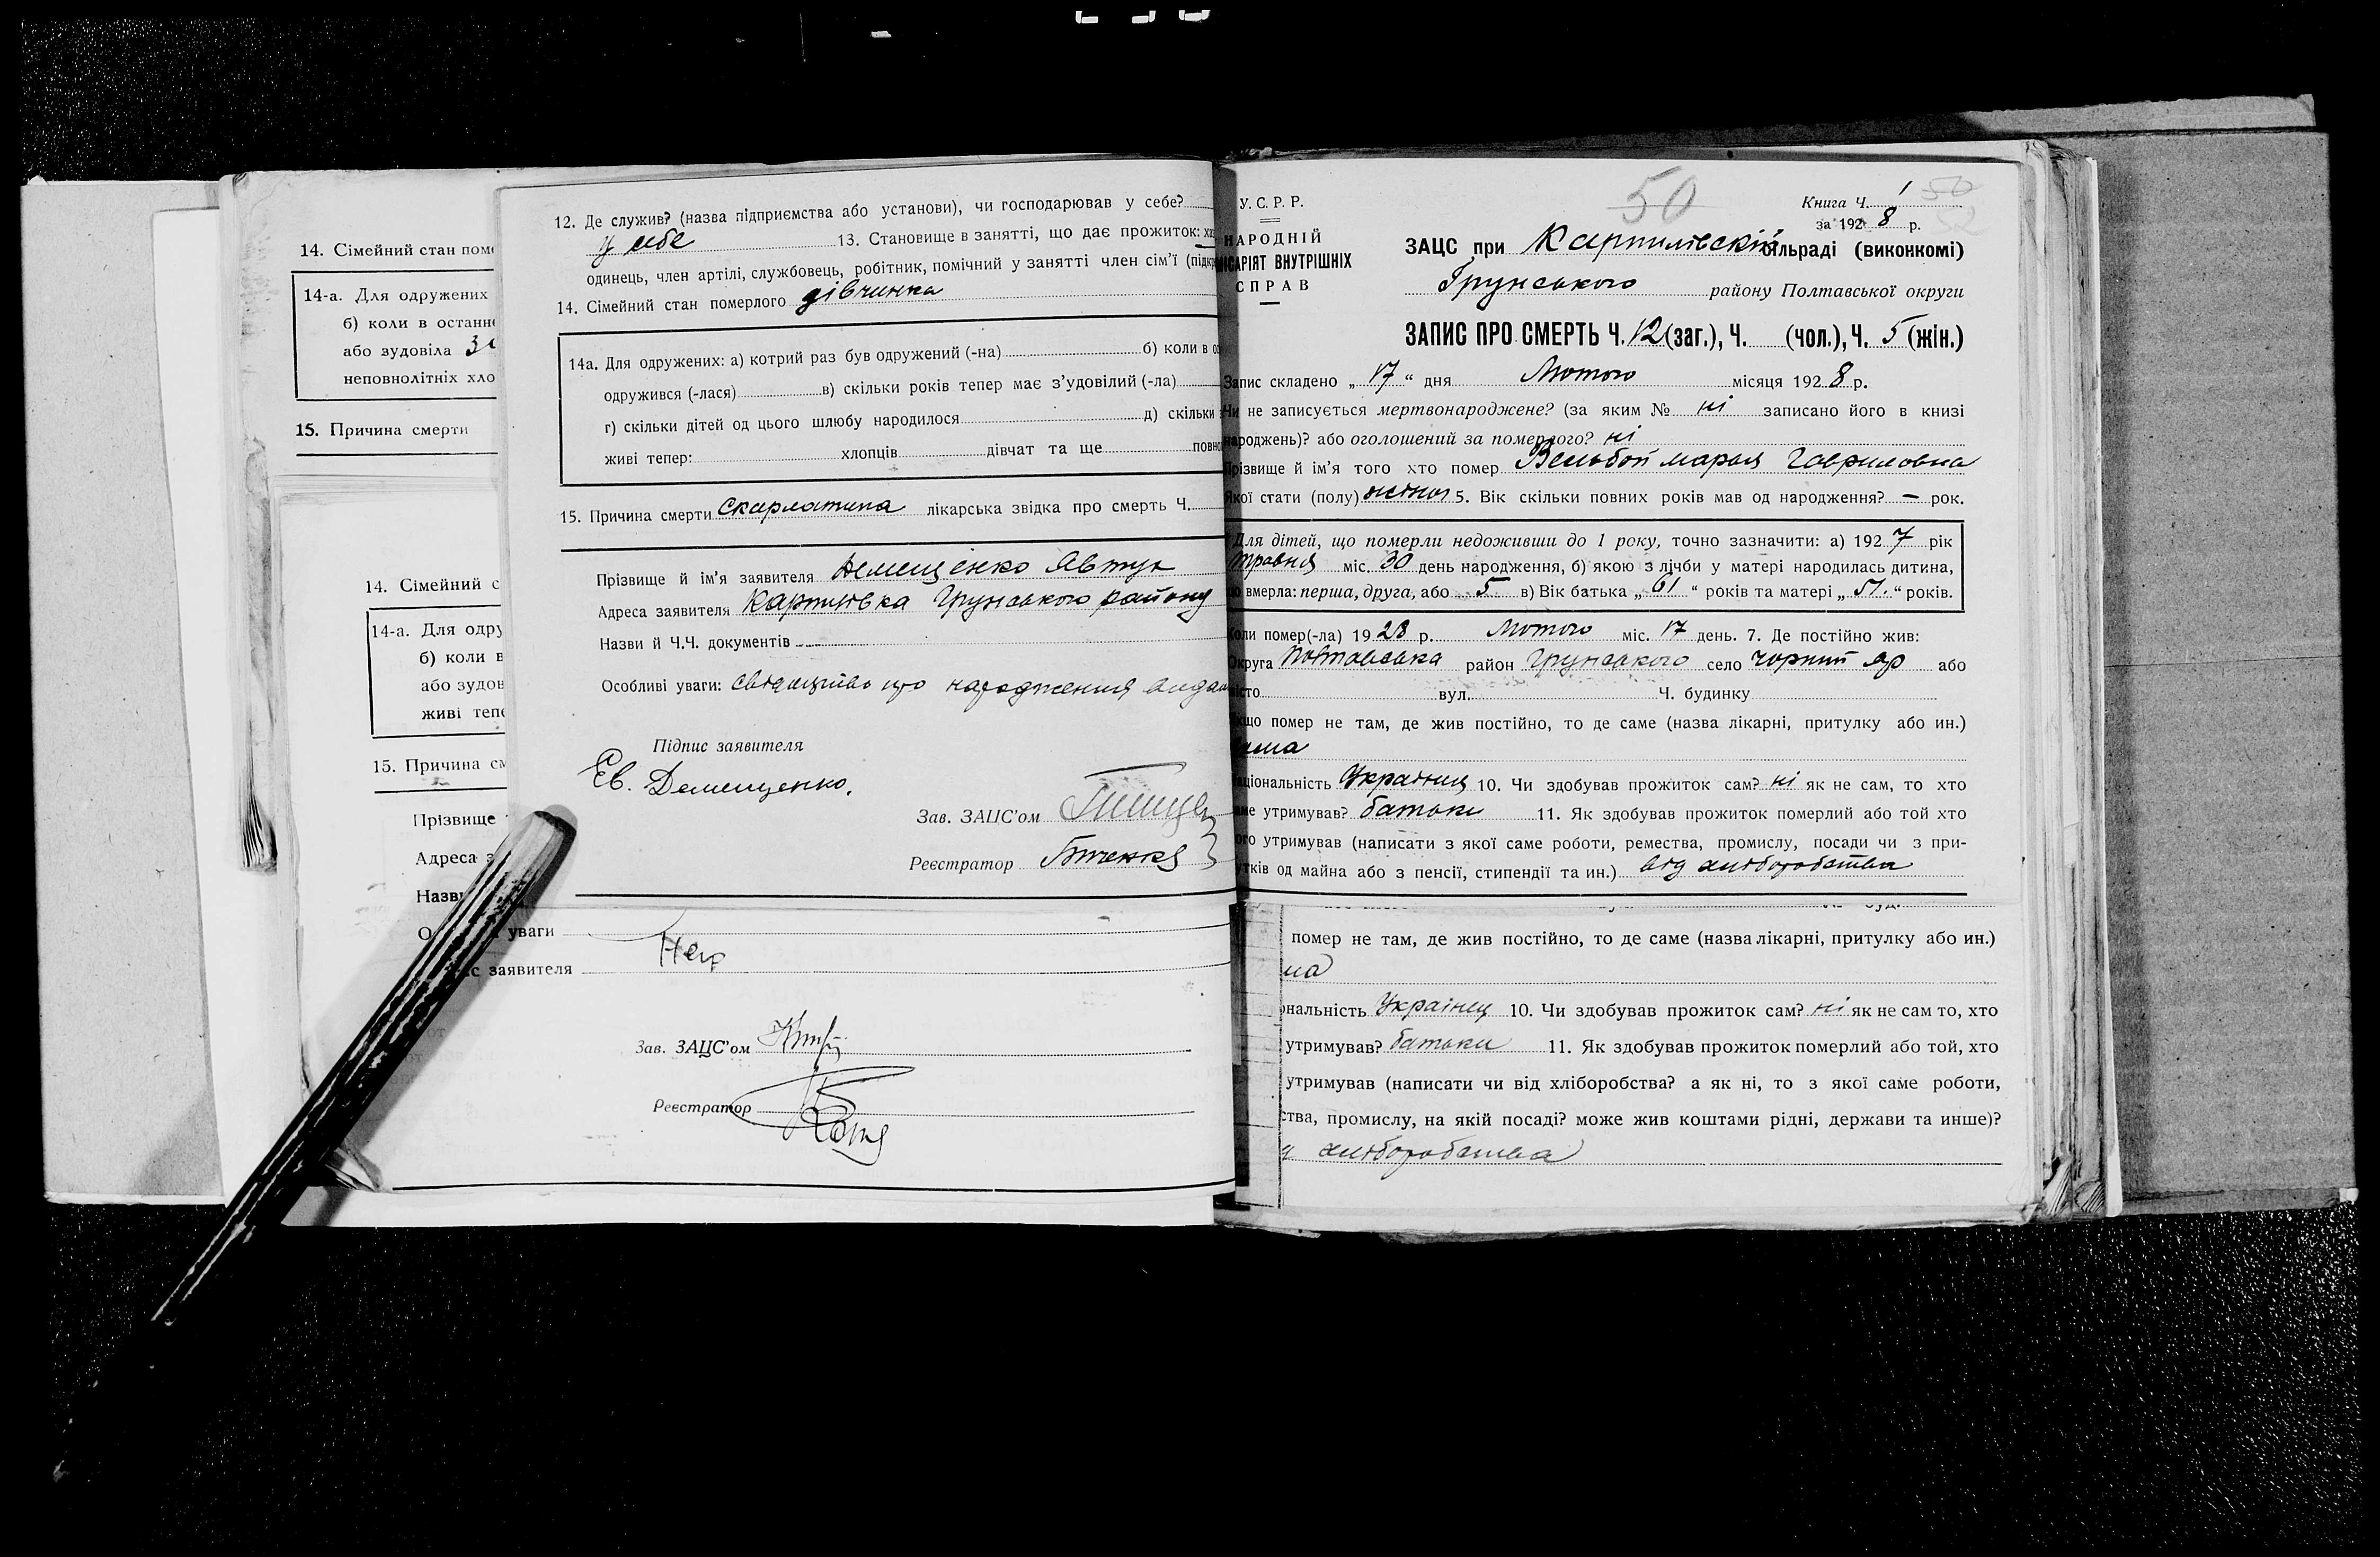 14. Сімейний стан пом
14-а. Для одружених
б) коли в останн
або зудовіла
неповнолітніх хло
15. Причина смерти
14. Сімейний с
14-а. Для одру
б) коли в
або зудов
живі теп
15. Причина см
Прізвище
Адреса з
Назв
12. Де служив? (назва підприємства або установи), чи господарював у себе?
у себе 13. Становище в занятті, що дає прожиток:
одинець, член артілі, службовець, робітник, помічний у занятті член сім'ї (підк
14. Сімейний стан померлого дівчинка
14а. Для одружених: а) котрий раз був одружений (-на) б) коли в
одружився (-лася) в) скільки років тепер має з'удовілий (-ла)
г) скільки дітей од цього шлюбу народилося д) скільки
живі тепер: хлопців дівчат та ще повно
15. Причина смерти Скарлатина лікарська звідка про смерть Ч.
Прізвище й ім'я заявителя Демещенко Явтух
Адреса заявителя Карпилівка Грунського району
Назви й Ч.Ч. документів
Особливі уваги: свідоцтво про народження видан
Підпис заявителя
Єв. Демещенко.
Зав. ЗАЦС'ом
Реєстратор
уваги
заявителя
Зав. ЗАЦС'ом
Реєстратор
50
У. С. Р. Р.
НАРОДНІЙ
КОМІСАРІЯТ ВНУТРІШНІХ
СПРАВ
Книга Ч. 1
за 1928 р.
ЗАЦС при Карпилівскій сільраді (виконкомі)
Грунського району Полтавської округи
ЗАПИС ПРО СМЕРТЬ Ч. 12 (заг.), Ч. (чол.), Ч. 5 (жін.)
Запис складено „17“ дня Лютого місяця 1928 р.
Чи не записується мертвонароджене? (за яким № ні записано його в книзі
народжень)? або оголошений за померлого? ні
Прізвище й ім'я того хто помер Вельбой Марья Гавриловна
Якої стати (полу) жіноч 5. Вік скільки повних років мав од народження? — рок.
Для дітей, що померли недоживши до 1 року, точно зазначити: а) 1927 рік
травня міс. 30 день народження, б) якою з лічби у матері народилась дитина,
що вмерла: перша, друга, або 5 в) Вік батька „61“ років та матері „51.“ років.
Коли помер(-ла) 1928 р. Лютого міс. 17 день. 7. Де постійно жив:
Округа Полтавська район Грунського село Чорний Яр або
місто вул. Ч. будинку
Якщо помер не там, де жив постійно, то де саме (назва лікарні, притулку або ин.)
Національність Украінця 10. Чи здобував прожиток сам? ні як не сам, то хто
саме утримував? батьки 11. Як здобував прожиток померлий або той хто
його утримував (написати з якої саме роботи, ремества, промислу, посади чи з при-
бутків од майна або з пенсії, стипендії та ин.) від хліборобства
помер не там, де жив постійно, то де саме (назва лікарні, притулку або ин.)
ональність Украінец 10. Чи здобував прожиток сам? ні як не сам то, хто
утримував? батьки 11. Як здобував прожиток померлий або той, хто
утримував (написати чи від хліборобства? а як ні, то з якої саме роботи,
ства, промислу, на якій посаді? може жив коштами рідні, держави та инше)?
хліборобства